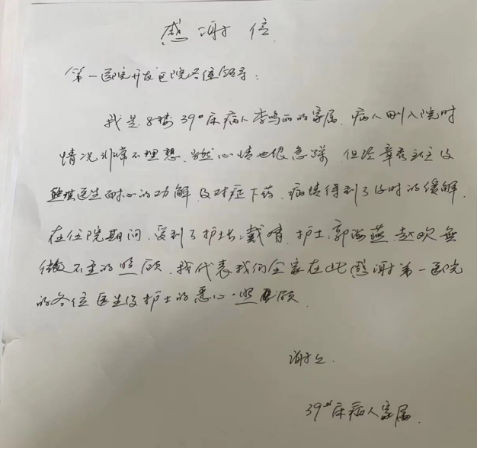 感谢信
第一医院开发区院各位领导:
我是8楼39#床病人李鸣丽的家属.病人刚入院时
情况非常不理想.当然心情也很急躁.但经章表主任及
医生耐心的劝解及对症下药.病情得到了及时的缓解.
在住院期间.受到了护士长戴情.护士郭海燕.赵欢无
微不至的照顾.我代表我们全家在此感谢第一医院
的各位医生及护士的悉心.照顾.
谢谢.
39#床病人家属.